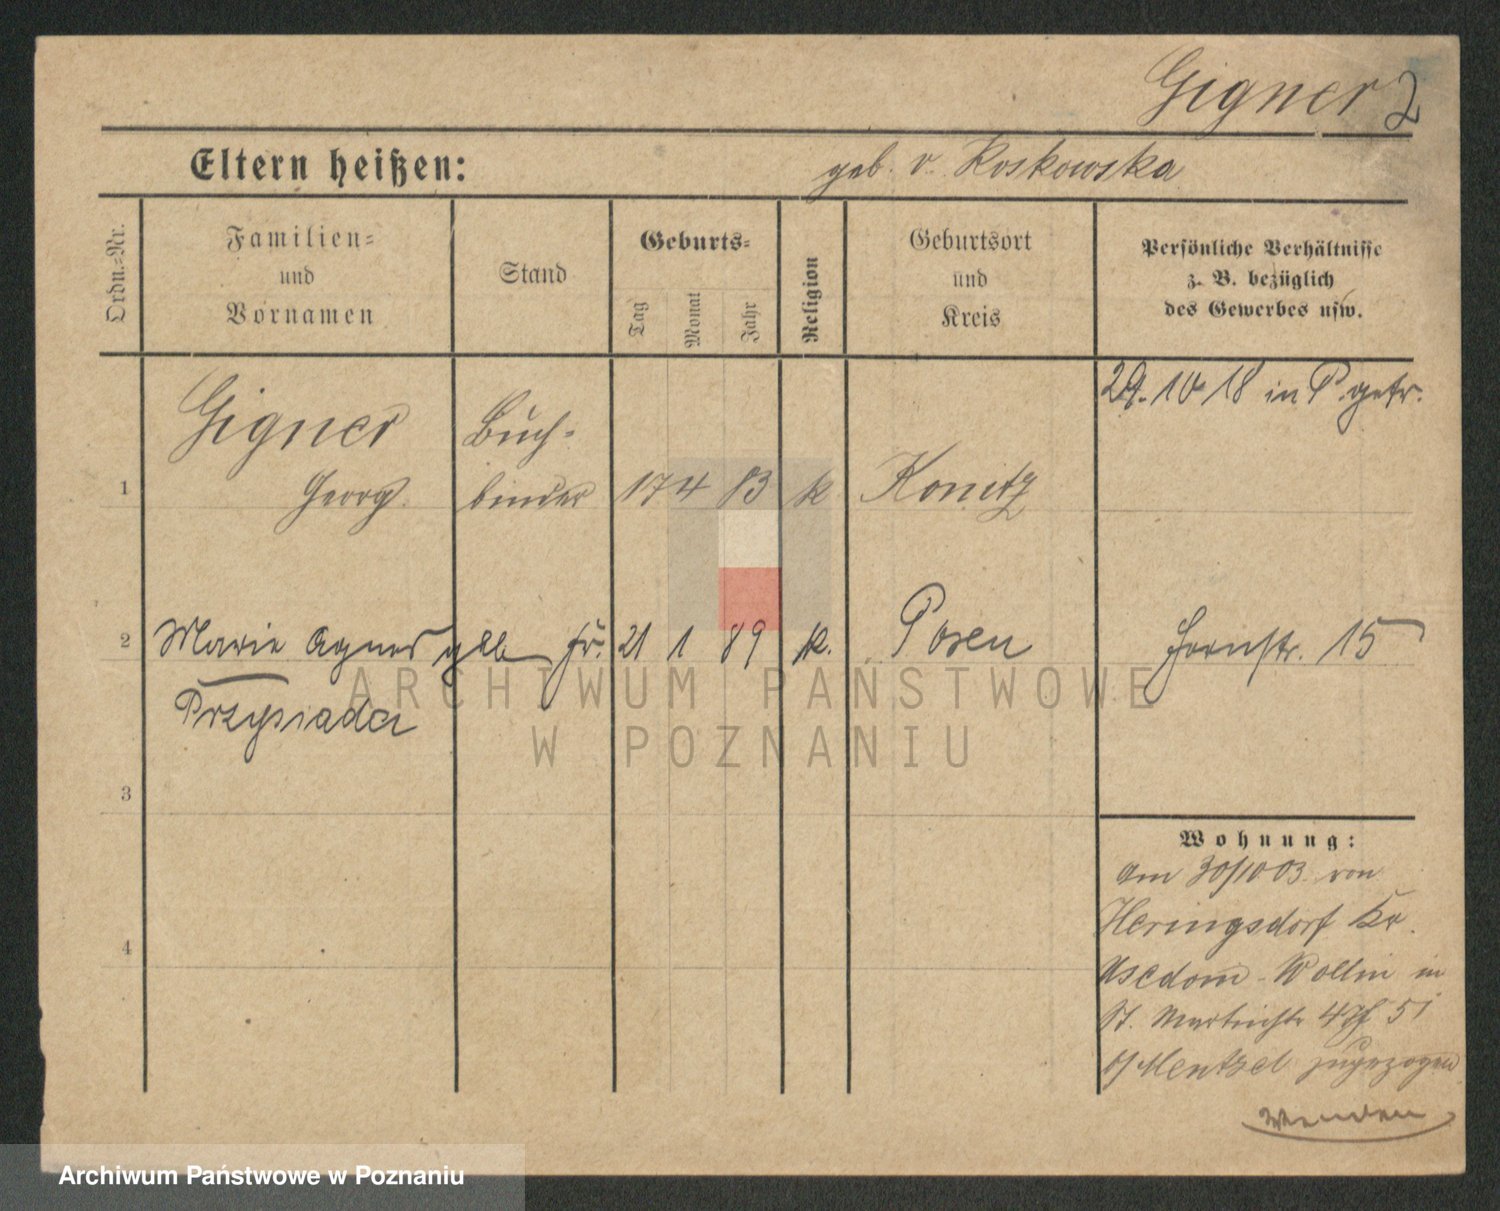 Gigner 2
Eltern heißen:
geb. v. Koskowska
Ordn.-Nr.
Familien-
und
Vornamen
Stand
Geburts-
Tag
Monat
Jahr
Religion
Geburtsort
und
Kreis
Persönliche Verhältnisse
z. B. bezüglich
des Gewerbes usw.
29. 10 18 in P. getr.
Gigner Buch-
1 Georg binder 17 4 83 k Konitz
2 Marie Agnes geb. 21 1 89 k. Posen 15
Przysiada
ARCHIWUM PAŃSTWOWE
W POZNANIU
3
Wohnung:
am 30/10 03 von
Heringsdorf Kr.
4
Usedom-Wollin in
St. Martinstr 51
Mentzel zugezogen
Wenden
Archiwum Państwowe w Poznaniu